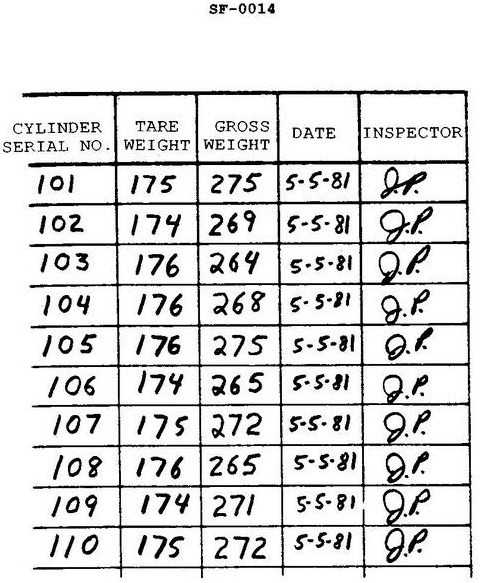 SF-0014
CYLINDER SERIAL NO. TARE WEIGHT GROSS WEIGHT DATE INSPECTOR
101 175 275 5-5-81 J.P.
102 174 269 5-5-81 J.P.
103 176 264 5-5-81 J.P.
104 176 268 5-5-81 J.P.
105 176 275 5-5-81 J.P.
106 174 265 5-5-81 J.P.
107 175 272 5-5-81 J.P.
108 176 265 5-5-81 J.P.
109 174 271 5-5-81 J.P.
110 175 272 5-5-81 J.P.